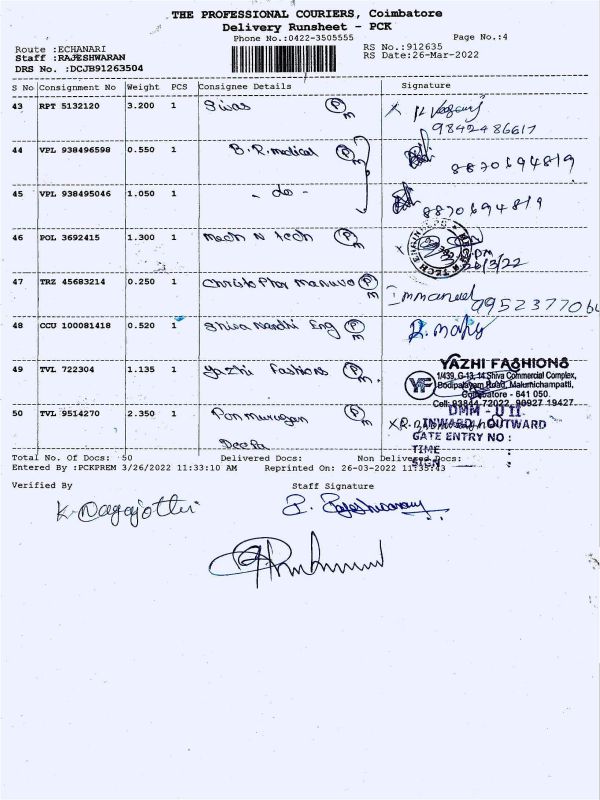 THE PROFESSIONAL COURIERS, Coimbatore
Delivery Runsheet - PCK
Phone No.:0422-3505555 Page No.:4
Route :ECHANARI RS No.:912635
Staff :RAJESHWARAN RS Date:26-Mar-2022
DRS No. :DCJB91263504
S No Consignment No Weight PCS Consignee Details Signature
43 RPT 5132120 3.200 1 P m
9842486617
44 VPL 938496598 0.550 1 B.R. medical P m
8870694819
45 VPL 938495046 1.050 1 - do -
8870694819
46 POL 3692415 1.300 1 Mech N Tech P m
47 TRZ 45683214 0.250 1 P m Immanuel
48 CCU 100081418 0.520 1 Shiva Nandhi Eng P m
49 TVL 722304 1.135 1 Yazhi Fashions P m.
YAZHI FASHIONS
YF 1/439, G-13, 14 Shiva Commercial Complex,
Bodipalayam Road, Malumichampatti,
Coimbatore - 641 050.
Cell: 93844 72022, 90927 19427.
50 TVL 9514270 2.350 1 Ponmurugan P m
DMM - U II
INWARD / OUTWARD
GATE ENTRY NO :
TIME :
SIGN :
Deepa
Total No. Of Docs: 50 Delivered Docs: Non Delivered Docs:
Entered By :PCKPREM 3/26/2022 11:33:10 AM Reprinted On: 26-03-2022 11:35:43
Verified By Staff Signature
K. Nagajothi P. Rajeshwaran